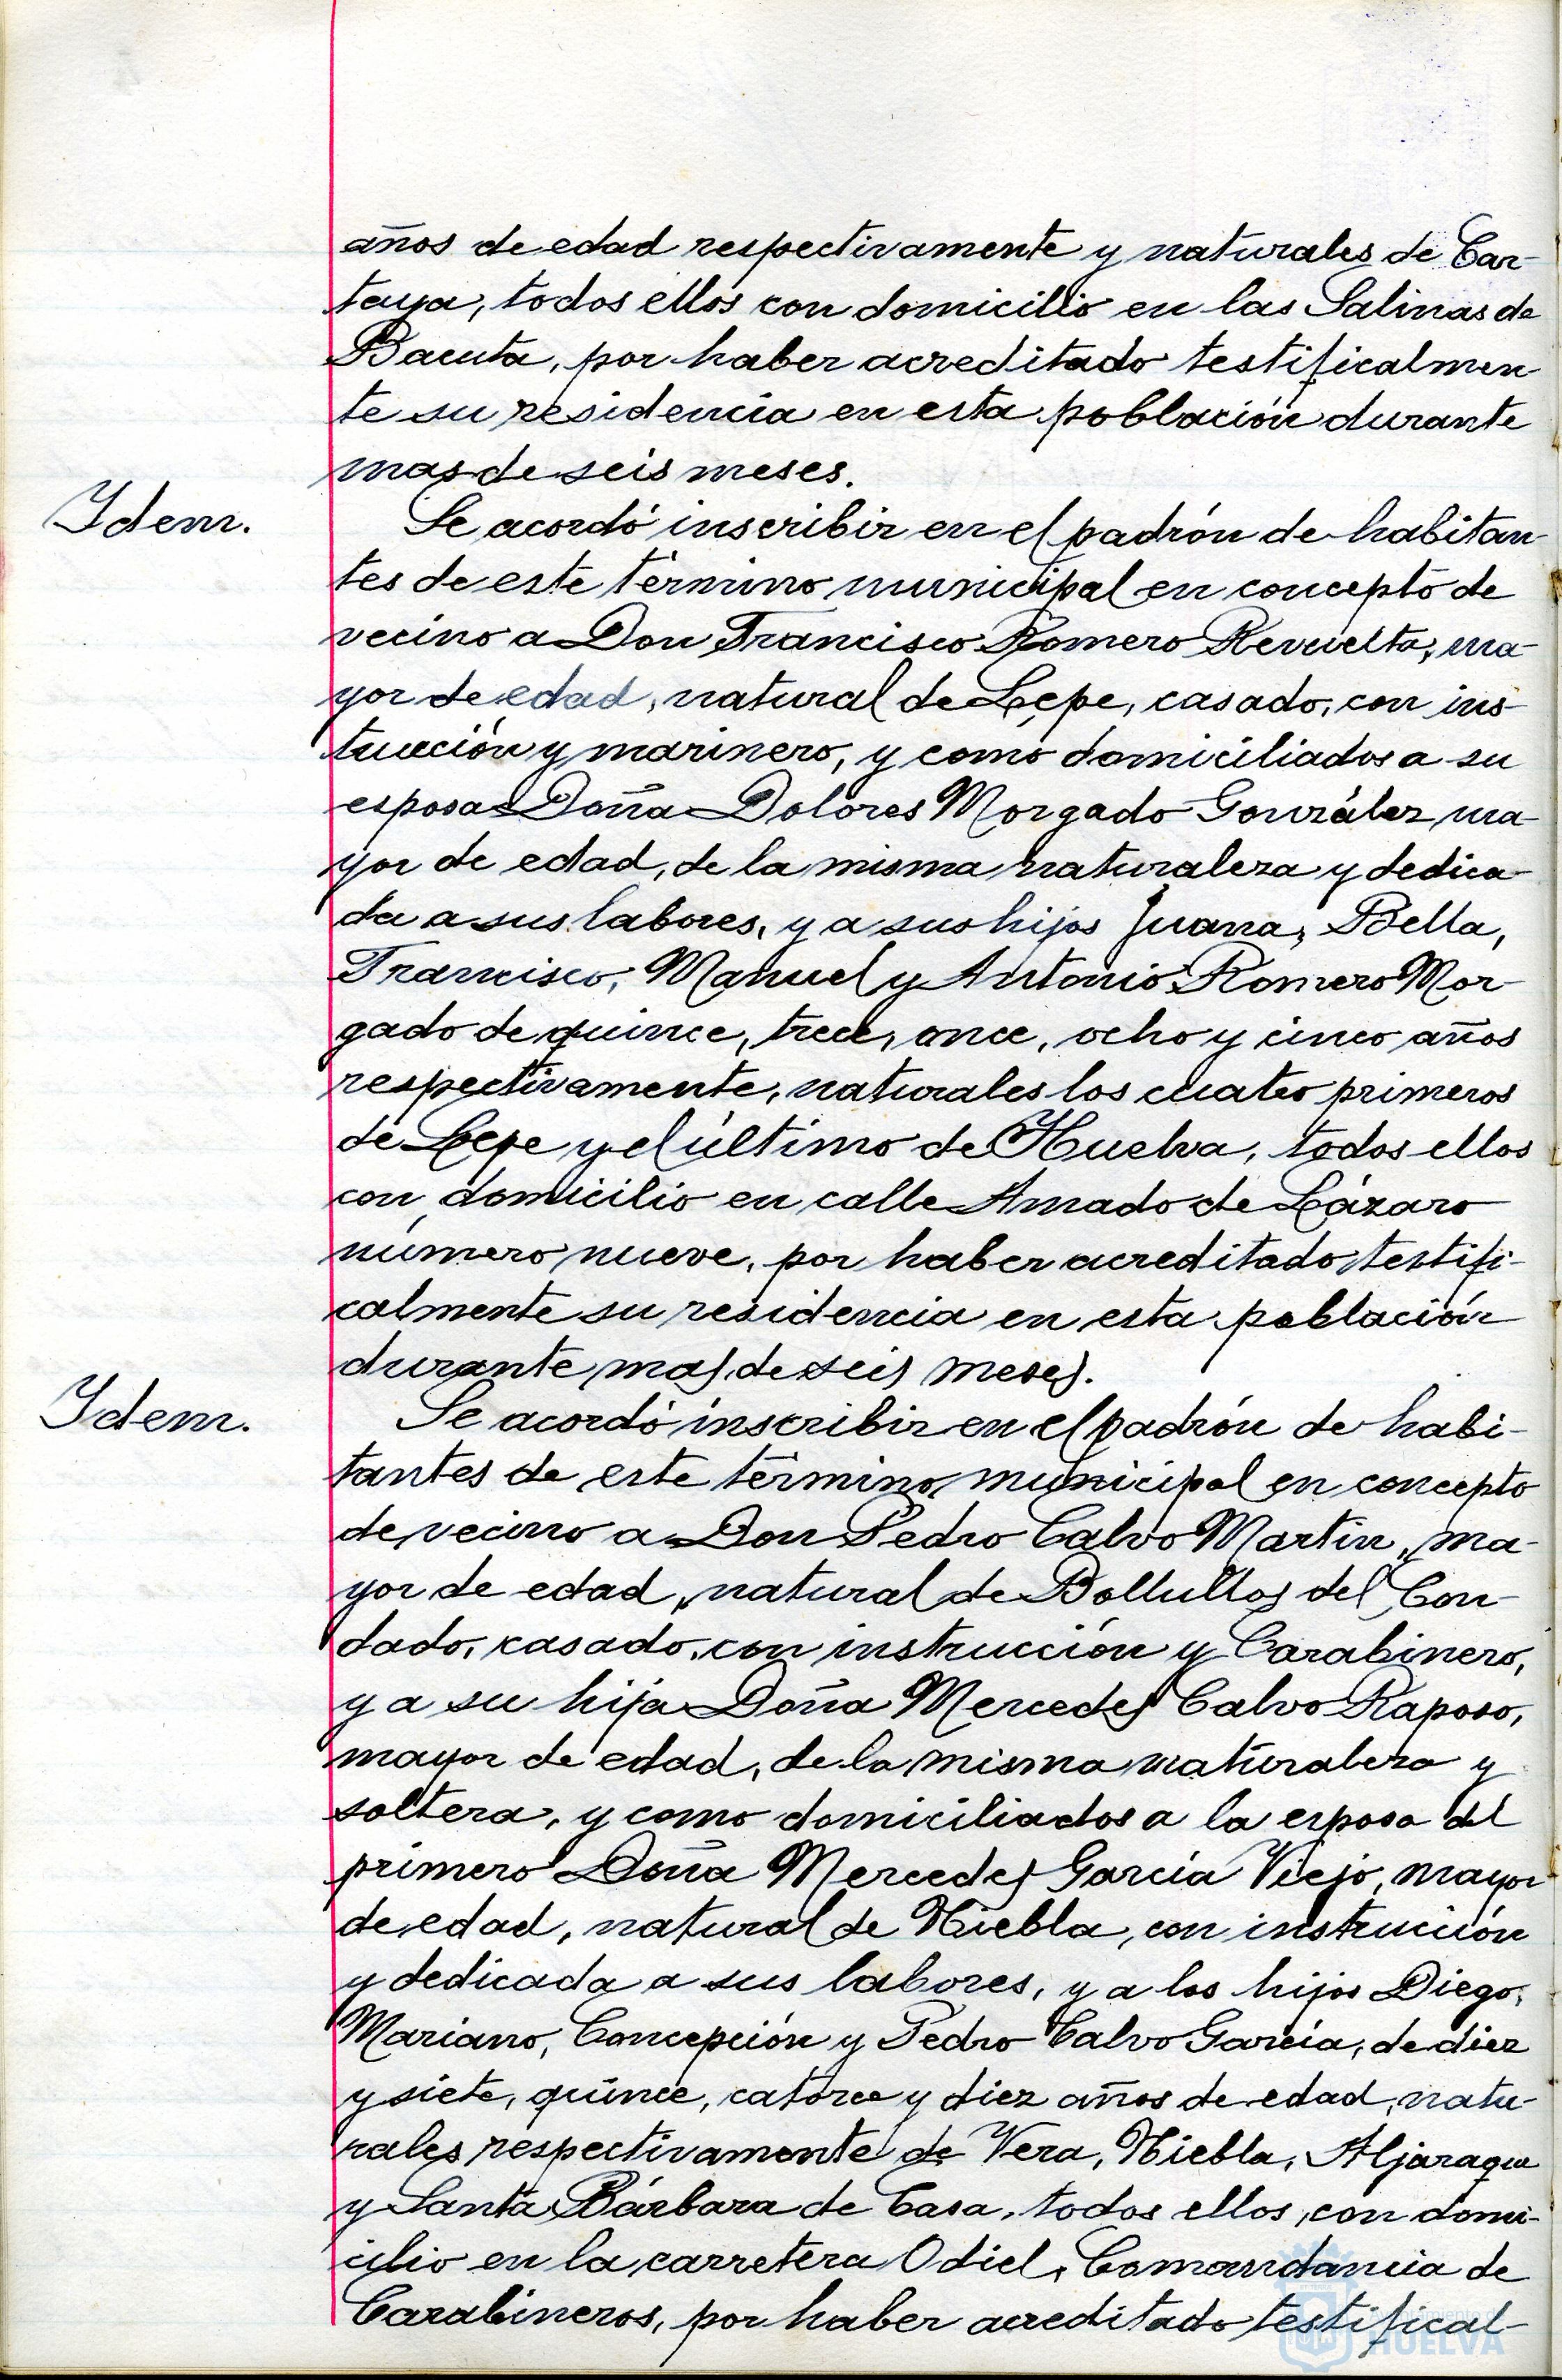 años de edad respectivamente y naturales de Car-
taya, todos ellos con domicilio en las Salinas de
Bacuta, por haber acreditado testificalmen
te su residencia en esta población durante
mas de seis meses.
Idem.
Se acordó inscribir en el padrón de habitan-
tes de este término municipal en concepto de
vecino a Don Francisco Romero Revuelta, ma-
yor de edad, natural de Lepe, casado, con ins-
trucción y marinero, y como domiciliados a su
esposa Doña Dolores Morgado González, ma-
yor de edad, de la misma naturaleza y dedica-
da a sus labores, y a sus hijos Juana, Bella,
Francisco, Manuel y Antonio Romero Mor-
gado de quince, trece, once, ocho y cinco años
respectivamente, naturales los cuatro primeros
de Lepe y el último de Huelva, todos ellos
con domicilio en calle Amado de Lázaro
número nueve, por haber acreditado testifi-
calmente su residencia en esta población
durante mas de seis meses.
Idem.
Se acordó inscribir en el padrón de habi-
tantes de este término municipal en concepto
de vecino a Don Pedro Calvo Martin, ma-
yor de edad, natural de Bollullos del Con-
dado, casado, con instrucción y Carabinero,
y a su hija Doña Mercedes Calvo Raposo,
mayor de edad, de la misma naturaleza y
soltera, y como domiciliados a la esposa del
primero Doña Mercedes García Viejo, mayor
de edad, natural de Niebla, con instrucción
y dedicada a sus labores, y a los hijos Diego,
Mariano, Concepción y Pedro Calvo García, de diez
y siete, quince, catorce y diez años de edad, natu-
rales respectivamente de Vera, Niebla, Aljaraque
y Santa Bárbara de Casa, todos ellos, con domi-
cilio en la carretera Odiel, Comandancia de
Carabineros, por haber acreditado testifical-
HUELVA